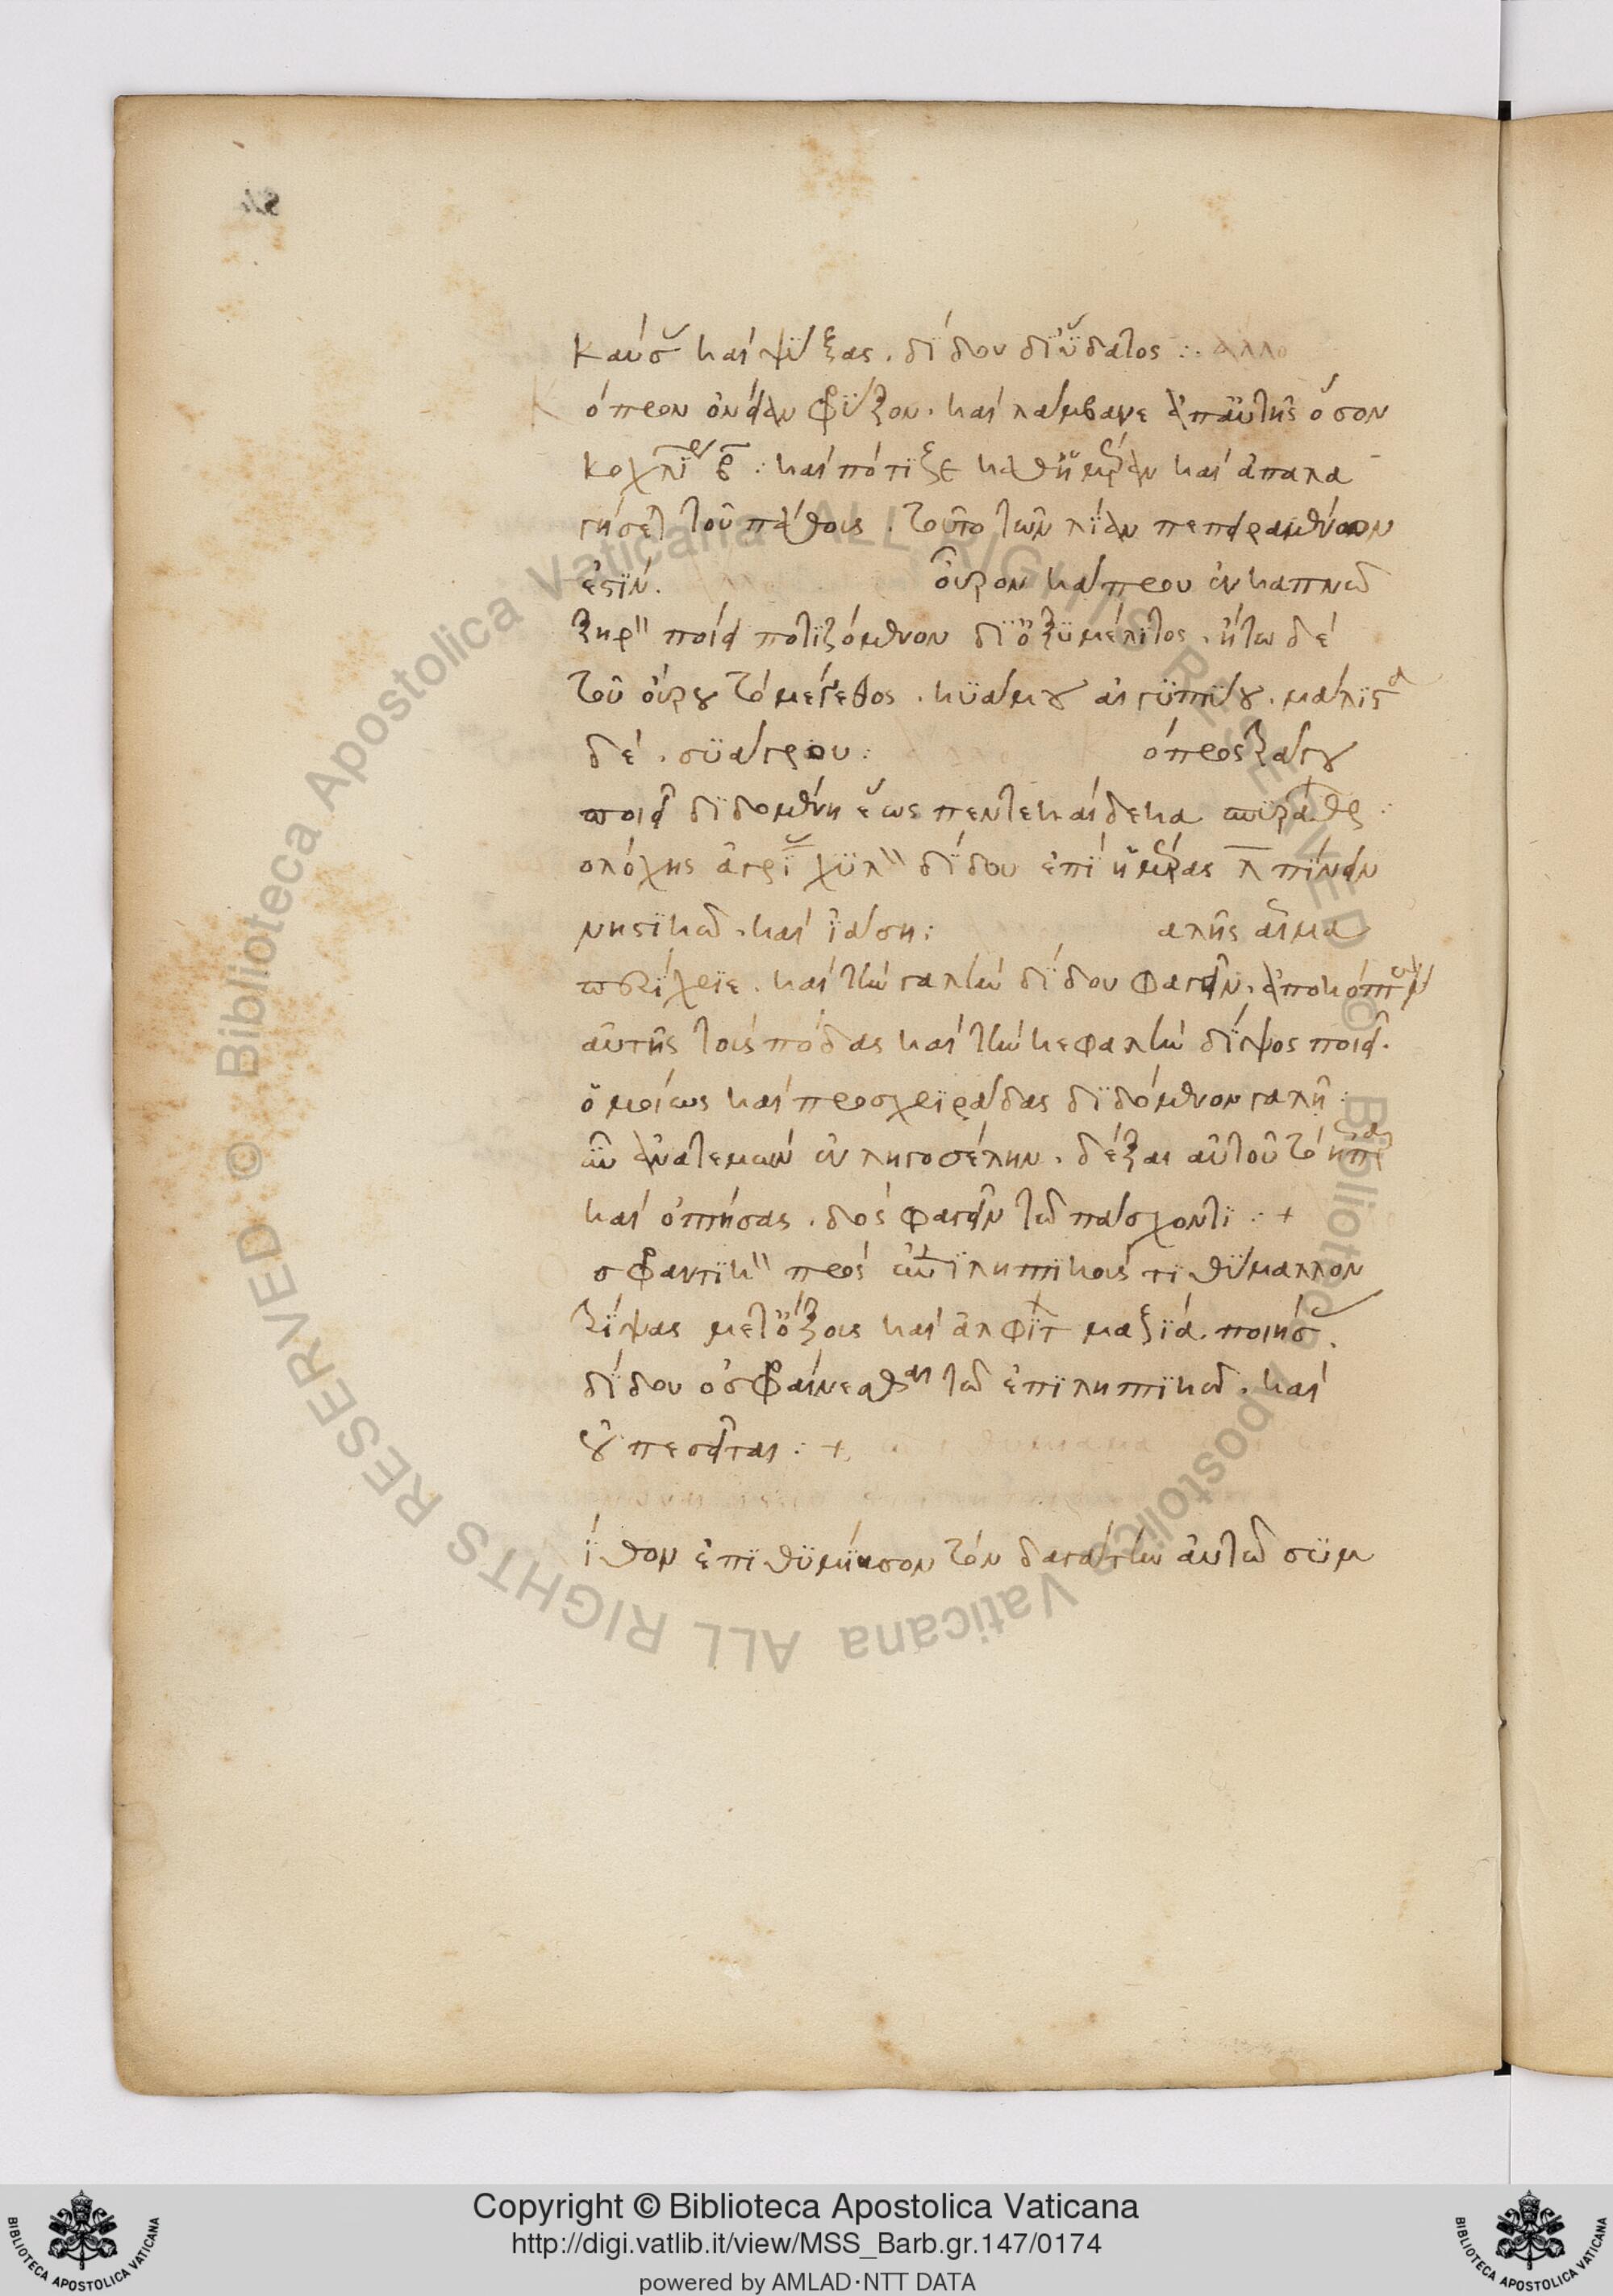 καύσ καὶ ψύξας. δίδου δι ὕδατος :. ἄλλο
όπρον ὀνάων φρύξον. καὶ λάμβανε ἀπ αὐτῆς ὅσον
κοχλϊ β : καὶ πότιξε καθ ἡμέραν καὶ ἀπαλα
γήσει τοῦ πάθους. τοῦτο τῶν λίαν πεπειραμένον
ἐστίν. οὖρον κάπρου ἐν καπνῶ
ξηρ ποιεῖ ποτιζόμενον δι ὀξυμέλιτος. ἤτω δὲ
τοῦ οὔρου τὸ μέγεθος. κυάμου αἰγυπτίου. μάλιστα
δέ. συάγρου : όπρος ξάγου
ποιεῖ διδομένη ἕως πεντεκαίδεκα
ολόχης ἀγρί χϋλ δίδου ἐπὶ ἡμέρας λ πίνειν
νηστικῶ. καὶ ἰάση : αλῆς αἷμα
καὶ τὴν γαλὴν δίδου φαγεῖν.
αὐτῆς τοὺς πόδας καὶ τὴν κεφαλὴν δίψος ποιεῖ.
ὁμοίως καὶ προσχειράδας διδόμενον γαλῆ :
ἀνατεμὼν ἐν ληγοσέλην. δέξαι αὐτοῦ τὸ ἧπαρ
καὶ ὀπτήσας. δὸς φαγεῖν τῶ πάσχοντι : +
σφραντικ πρὸς ἐπιληπτικοὺς τιθύμαλλον
τρίψας μετ ὄξους καὶ ἀλφίτ μαξία. ποιήσ.
δίδου ὀσφραίνεσθαι τῶ ἐπιληπτικῶ. καὶ
οὐ πεσεῖται : +
ίθον ἐπιθυμίασον τὸν γαγάτην αὐτῶ σϋμ
Copyright © Biblioteca Apostolica Vaticana
http://digi.vatlib.it/view/MSS_Barb.gr.147/0174
powered by AMLAD·NTT DATA
BIBLIOTECA APOSTOLICA VATICANA
BIBLIOTECA APOSTOLICA VATICANA
© Biblioteca Apostolica Vaticana ALL RIGHTS RESERVED
© Biblioteca Apostolica Vaticana ALL RIGHTS RESERVED